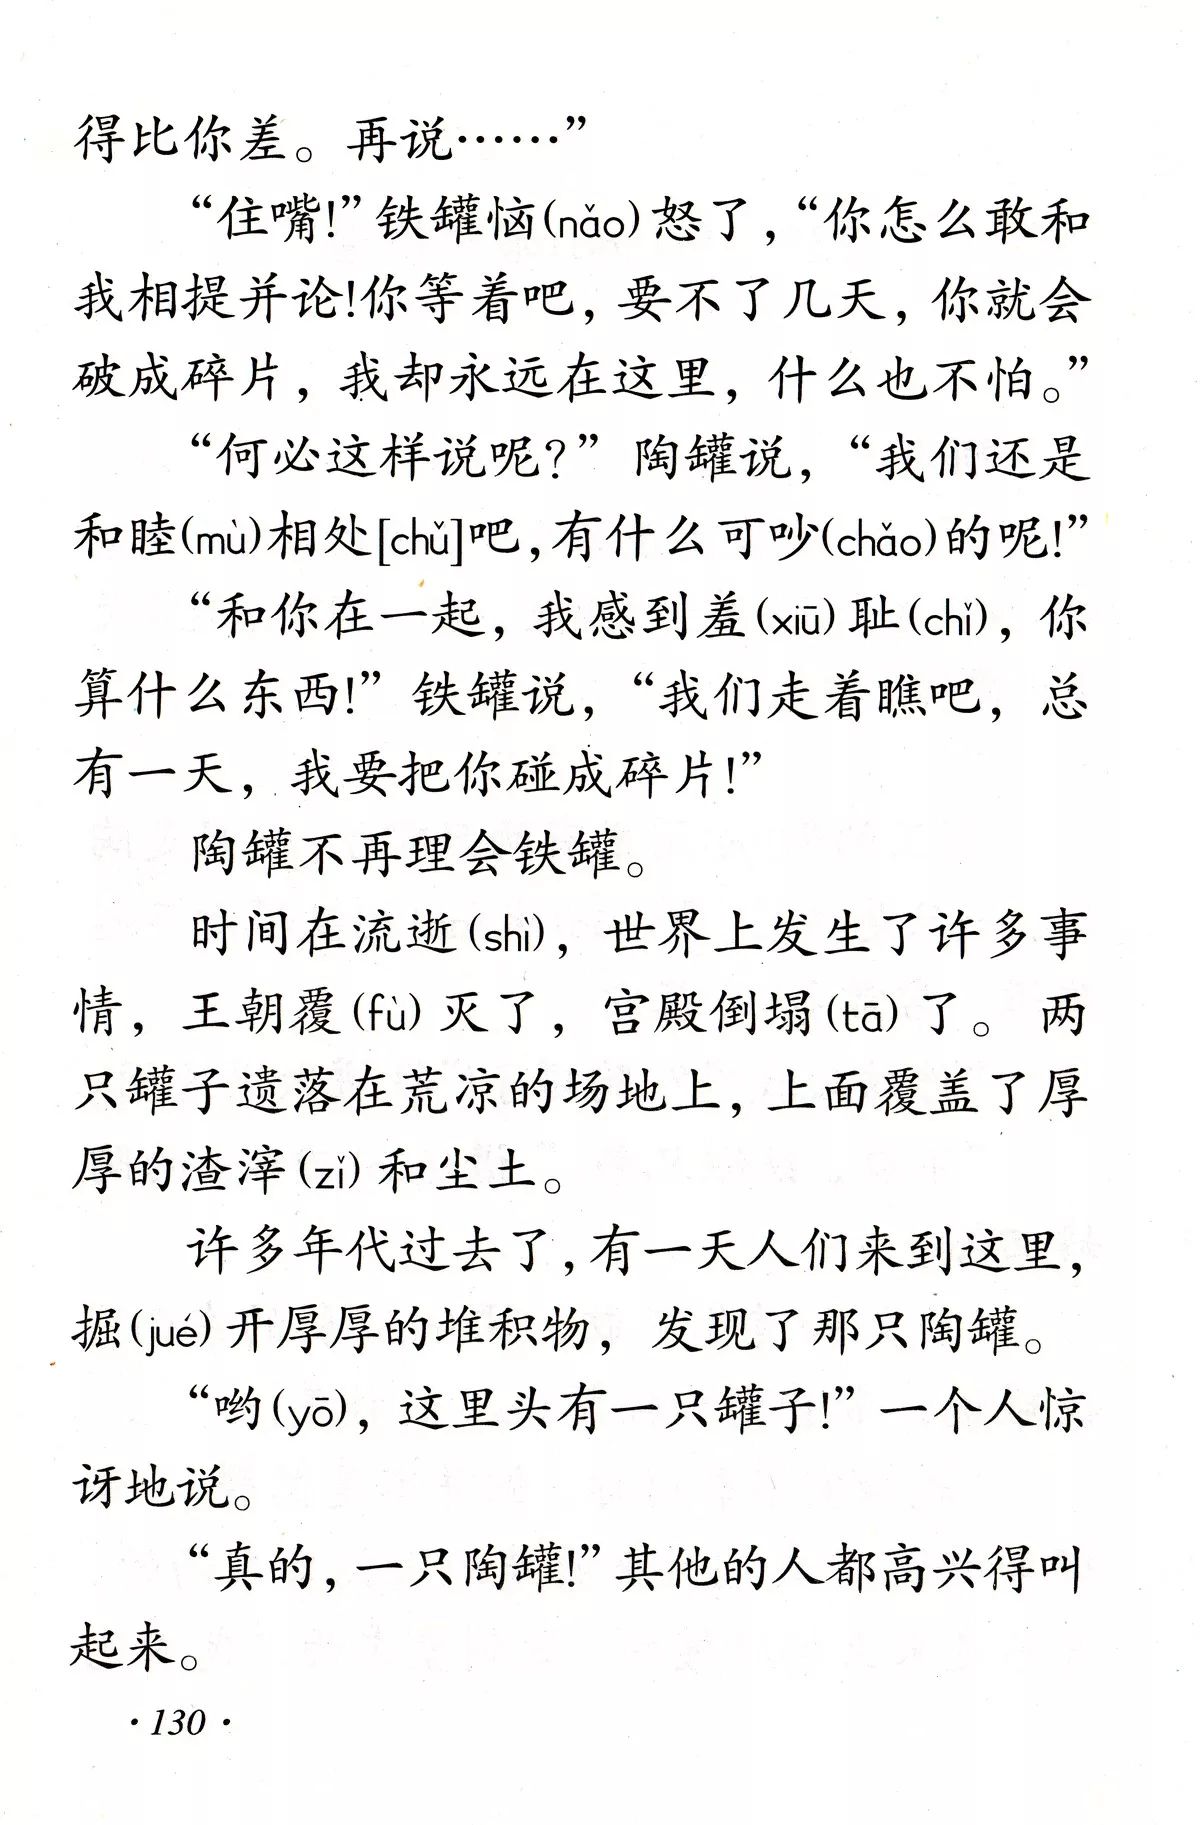 得比你差。再说……”
“住嘴!”铁罐恼(nǎo)怒了,“你怎么敢和
我相提并论!你等着吧,要不了几天,你就会
破成碎片,我却永远在这里,什么也不怕。”
“何必这样说呢?”陶罐说,“我们还是
和睦(mù)相处[chǔ]吧,有什么可吵(chǎo)的呢!”
“和你在一起,我感到羞(xiū)耻(chǐ),你
算什么东西!”铁罐说,“我们走着瞧吧,总
有一天,我要把你碰成碎片!”
陶罐不再理会铁罐。
时间在流逝(shì),世界上发生了许多事
情,王朝覆(fù)灭了,宫殿倒塌(tā)了。两
只罐子遗落在荒凉的场地上,上面覆盖了厚
厚的渣滓(zǐ)和尘土。
许多年代过去了,有一天人们来到这里,
掘(jué)开厚厚的堆积物,发现了那只陶罐。
“哟(yō),这里头有一只罐子!”一个人惊
讶地说。
“真的,一只陶罐!”其他的人都高兴得叫
起来。
·130·